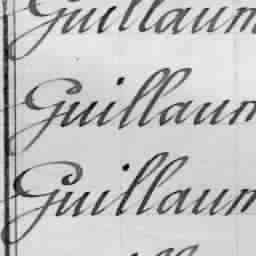 Guillaum
Guillaum
Guillaum